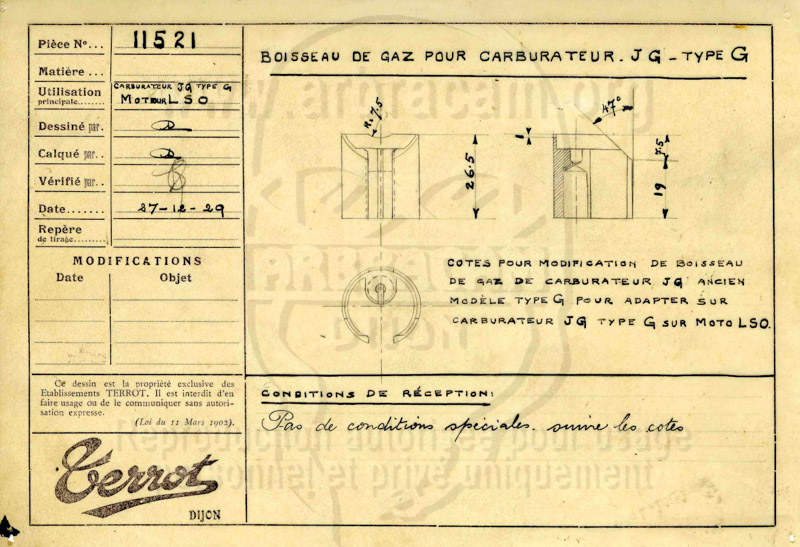 Pièce Nº... 11521
Matière ...
Utilisation principale........ CARBURATEUR JG TYPE G
MOTEUR LSO
Dessiné par. D
Calqué par.. D
Vérifié par..
Date....... 27-12-29
Repère
de tirage.........
MODIFICATIONS
Date Objet
Ce dessin est la propriété exclusive des
Etablissements TERROT. Il est interdit d'en
faire usage ou de le communiquer sans autori-
sation expresse.
(Loi du 11 Mars 1902).
Terrot
DIJON
BOISSEAU DE GAZ POUR CARBURATEUR. JG - TYPE G
R. 7.5
26.5
1
47°
7.5
19
COTES POUR MODIFICATION DE BOISSEAU
DE GAZ DE CARBURATEUR JG ANCIEN
MODÈLE TYPE G POUR ADAPTER SUR
CARBURATEUR JG TYPE G SUR MOTO LSO.
CONDITIONS DE RÉCEPTION:
Pas de conditions spéciales. suivre les cotes
www.artracam.org
ARBRACAM
DIJON
Reproduction autorisée pour usage
personnel et privé uniquement